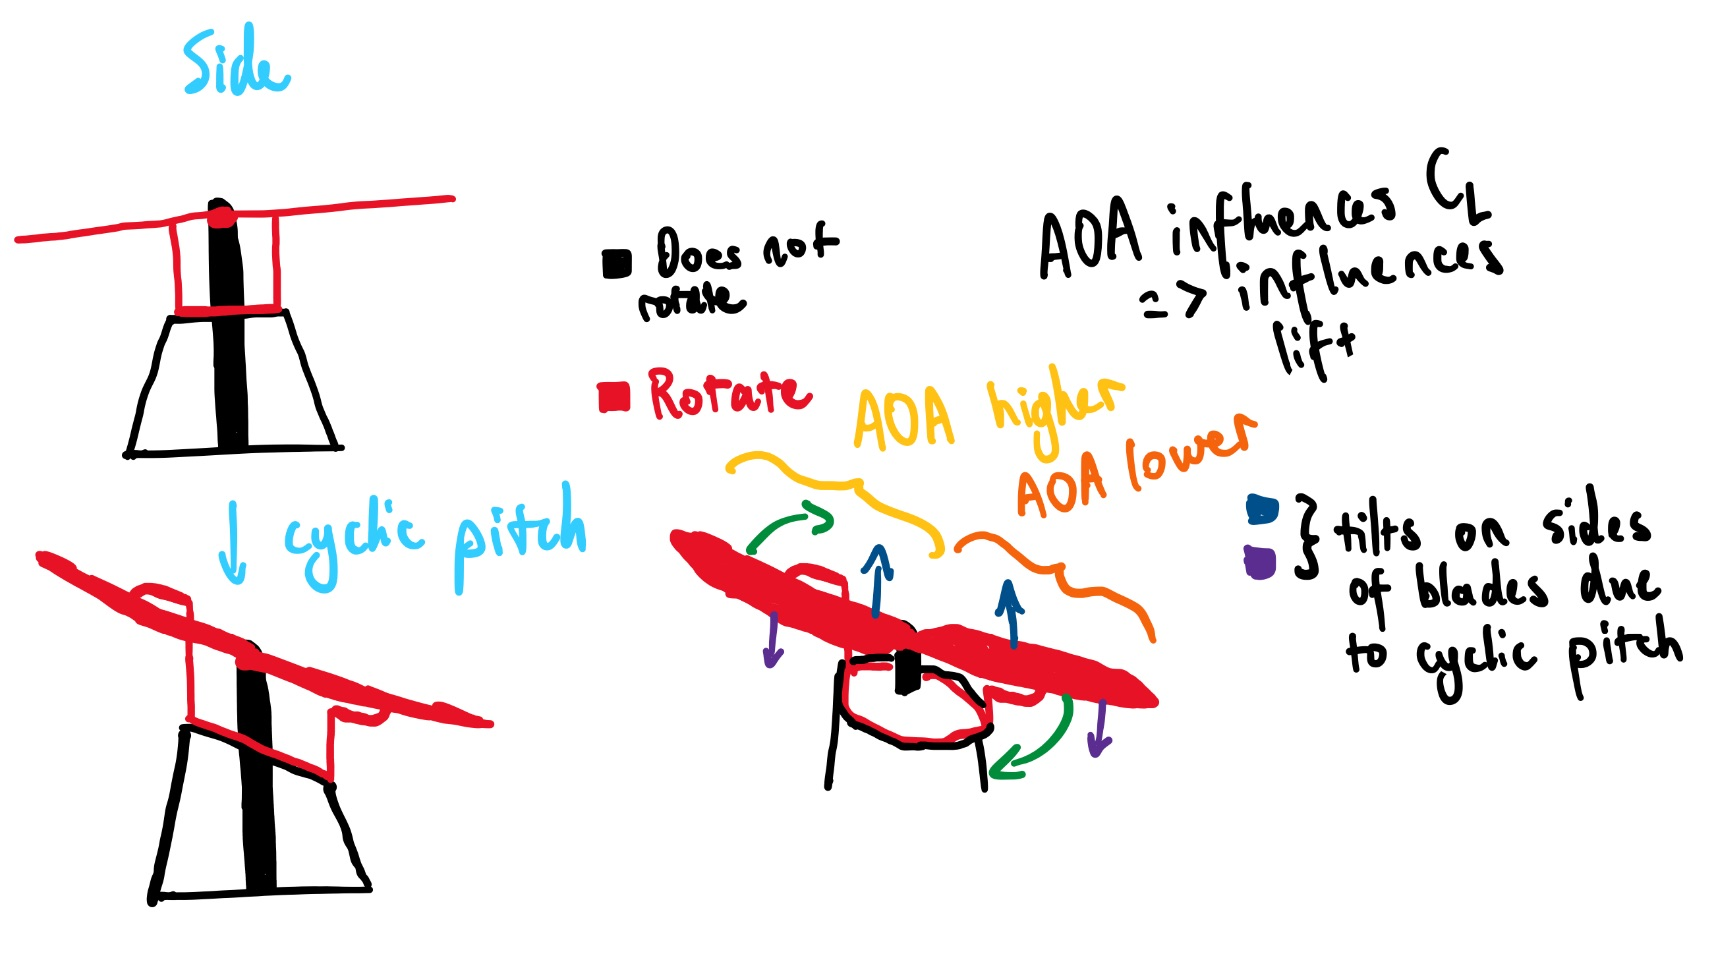 Side
Does not
rotate
Rotate
AOA influences CL
=> influences
lift
AOA higher
AOA lower
cyclic pitch
tilts on sides
of blades due
to cyclic pitch